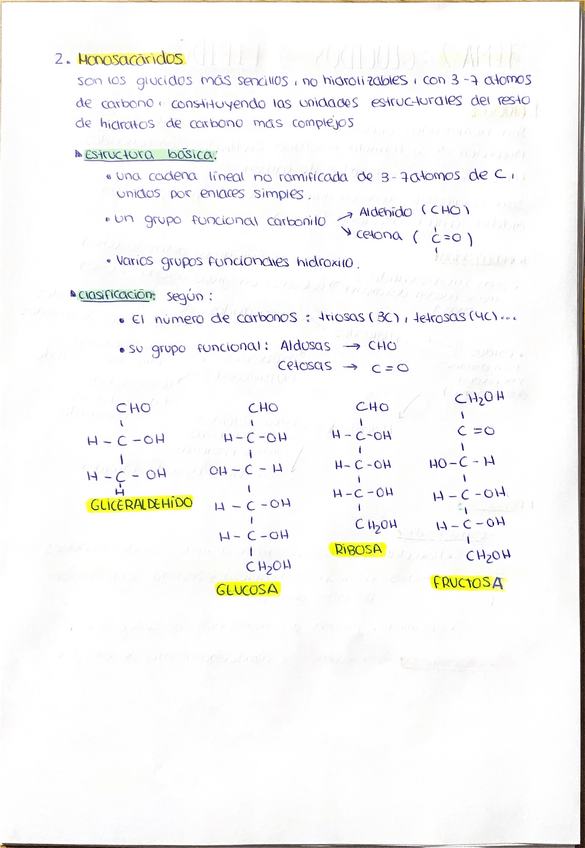 2. Monosacáridos
son los glucidos más sencillos, no hidrolizables, con 3-7 atomos
de carbono, constituyendo las unidades estructurales del resto
de hidratos de carbono más complejos
Estructura básica:
• una cadena lineal no ramificada de 3-7 atomos de C,
unidos por enlaces simples.
• un grupo funcional carbonilo → Aldehido (CHO)
↘ cetona ( C=O )
• Varios grupos funcionales hidroxilo.
Clasificación: según:
• El número de carbonos: triosas (3C), tetrosas (4C)...
• su grupo funcional: Aldosas → CHO
Cetosas → C=O
CHO
H-C-OH
H-C-OH
H
GLICERALDEHÍDO
CHO
H-C-OH
OH-C-H
H-C-OH
H-C-OH
CH₂OH
GLUCOSA
CHO
H-C-OH
H-C-OH
H-C-OH
CH₂OH
RIBOSA
CH₂OH
C=O
HO-C-H
H-C-OH
H-C-OH
CH₂OH
FRUCTOSA